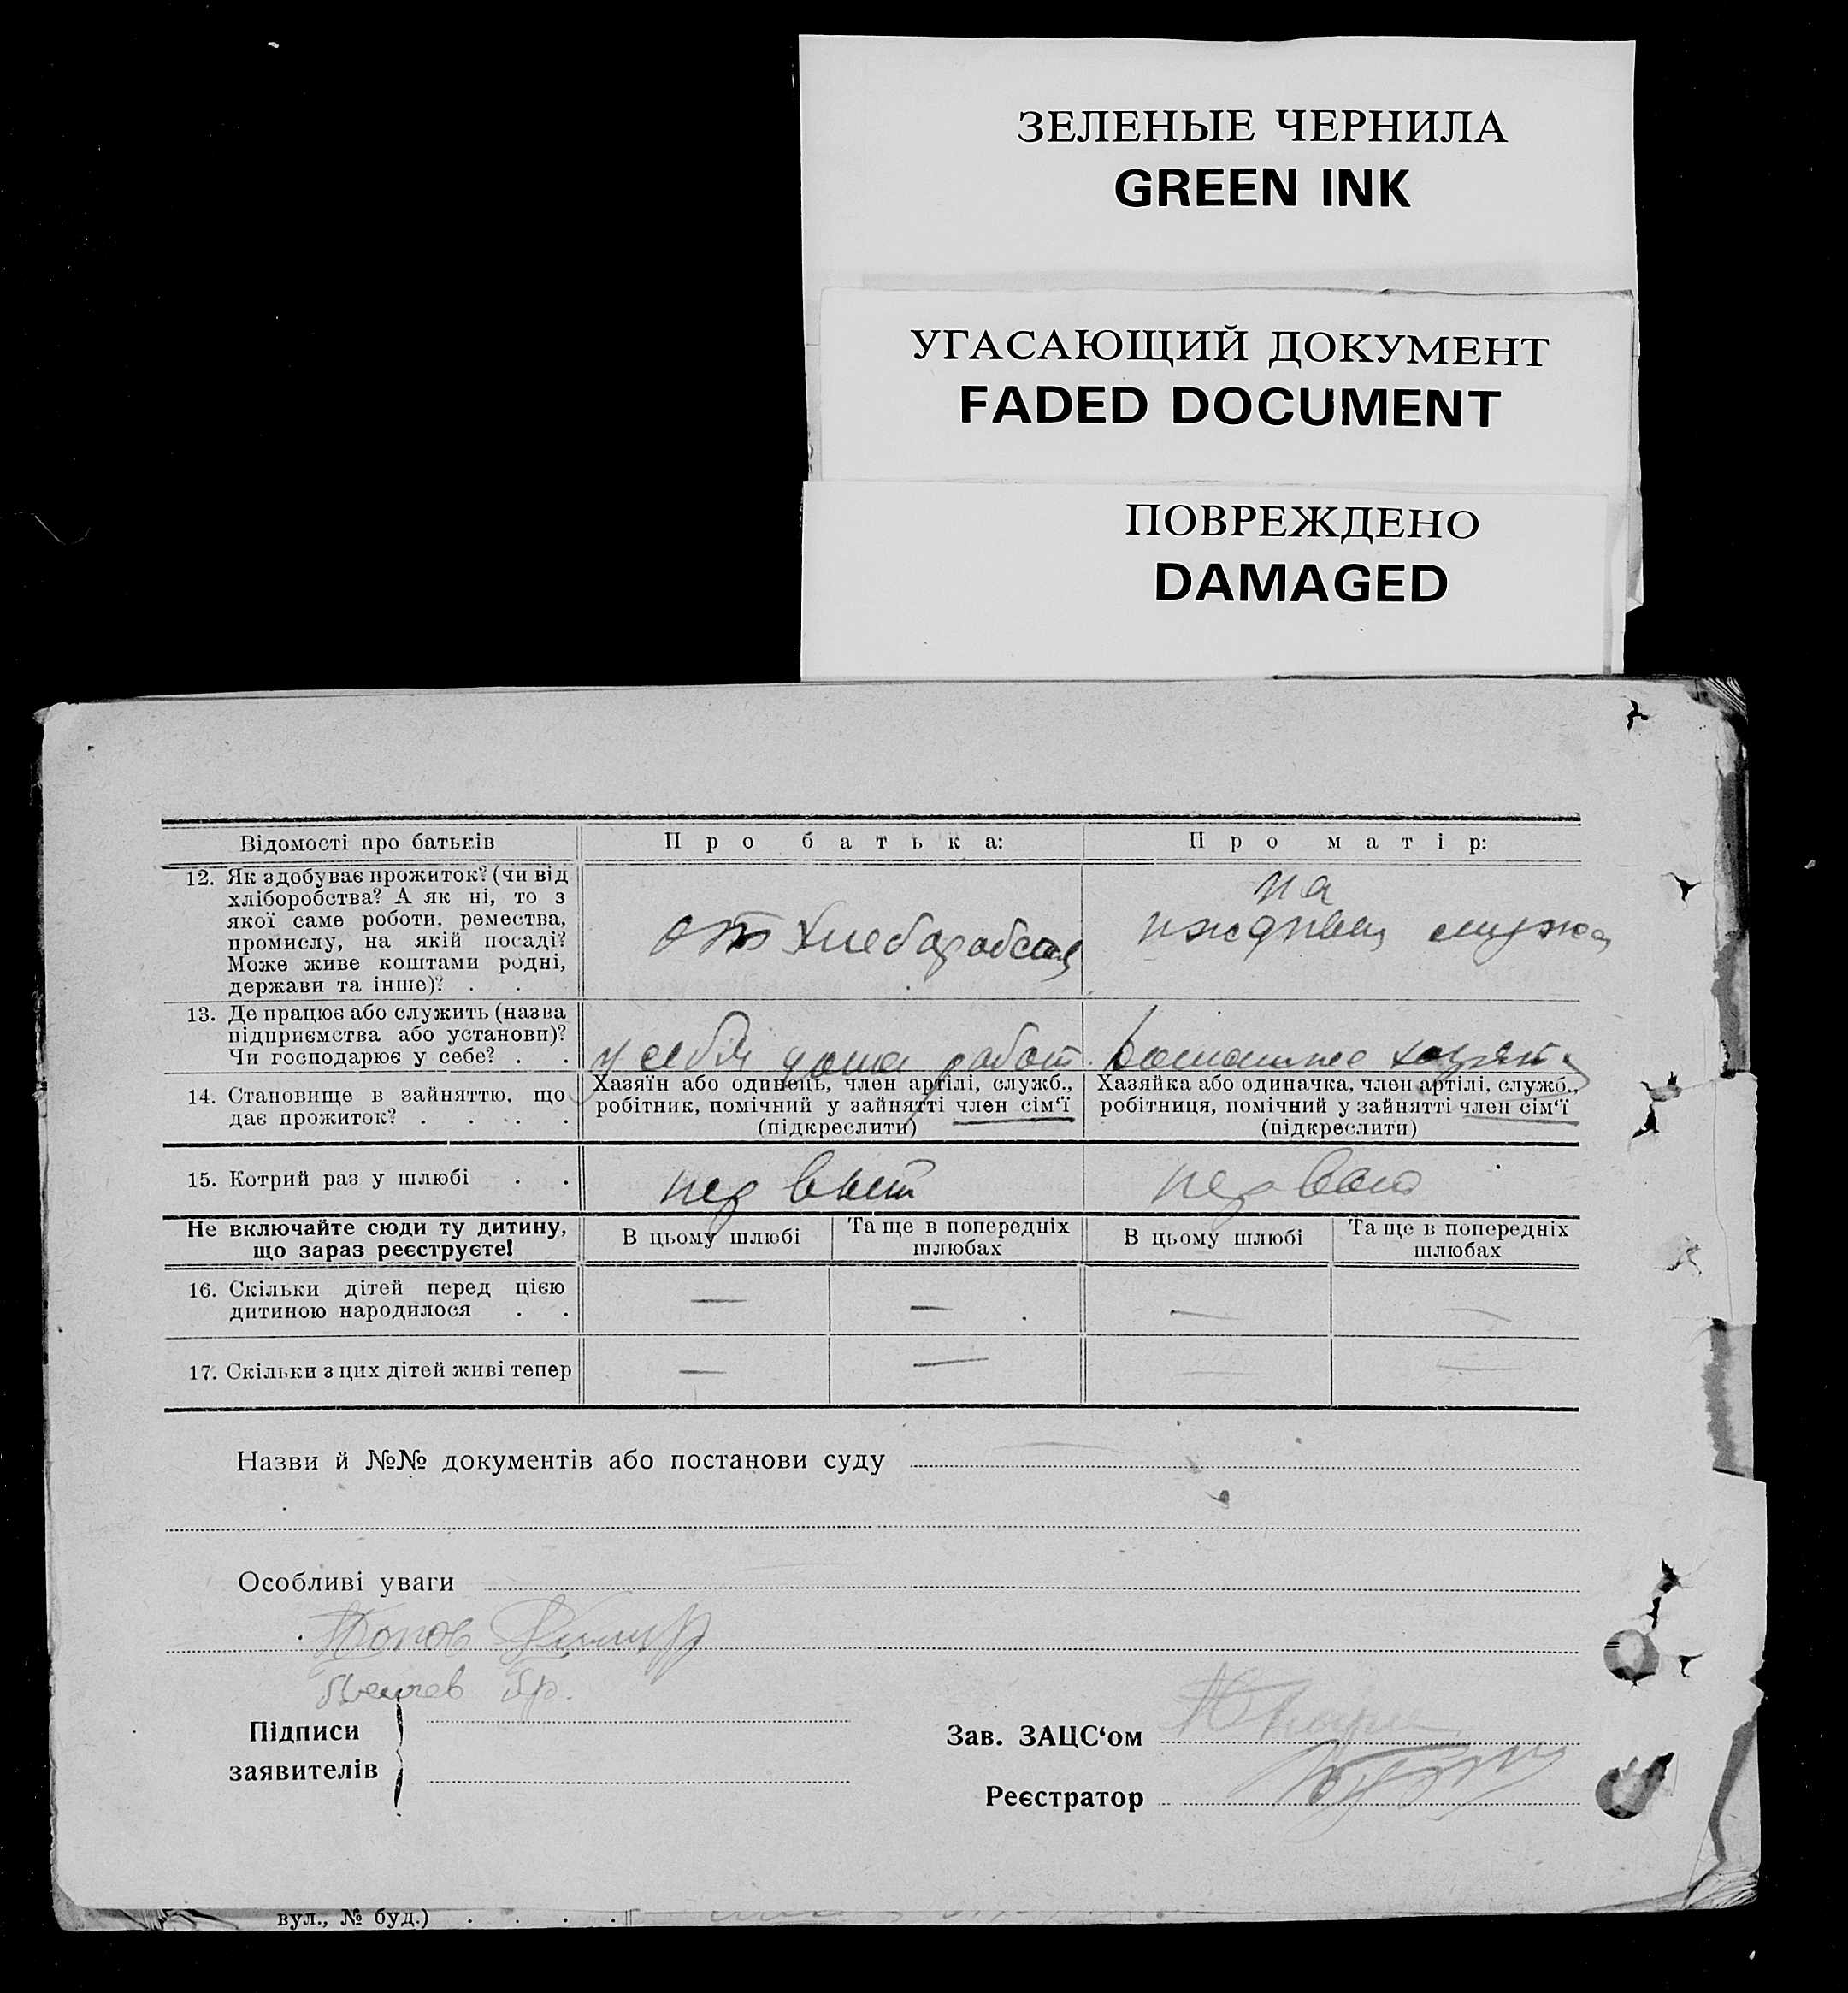 ЗЕЛЕНЫЕ ЧЕРНИЛА
GREEN INK
УГАСАЮЩИЙ ДОКУМЕНТ
FADED DOCUMENT
ПОВРЕЖДЕНО
DAMAGED
Відомості про батьків
Про батька:
Про матір:
12. Як здобуває прожиток? (чи від
хліборобства? А як ні, то з
якої саме роботи, ремества,
промислу, на якій посаді?
Може живе коштами родні,
держави та інше)? . .
от
на
мужа
13. Де працює або служить (назва
підприємства або установи)?
Чи господарює у себе? . .
у себя дома работ.
14. Становище в зайняттю, що
дає прожиток? . . . .
Хазяїн або одинець, член артілі, служб.,
робітник, помічний у зайнятті член сім‘ї
(підкреслити)
Хазяйка або одиначка, член артілі, служб.,
робітниця, помічний у зайнятті член сім‘ї
(підкреслити)
15. Котрий раз у шлюбі . .
первый
первый
Не включайте сюди ту дитину,
що зараз реєструєте!
В цьому шлюбі
Та ще в попередніх
шлюбах
В цьому шлюбі
Та ще в попередніх
шлюбах
16. Скільки дітей перед цією
дитиною народилося . .
— — — —
17. Скільки з цих дітей живі тепер
— — — —
Назви й №№ документів або постанови суду
Особливі уваги
Попов
Підписи
заявителів
Зав. ЗАЦС‘ом
Реєстратор
вул., № буд.) . . . .